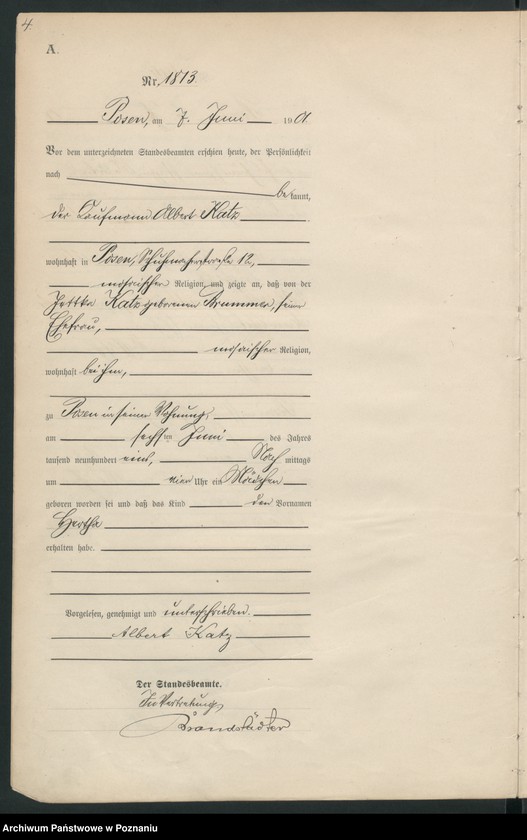 4.
A.
Nr. 1813
Posen, am 7. Juni 1901
Vor dem unterzeichneten Standesbeamten erschien heute, der Persönlichkeit
nach
bekannt,
der Kaufmann Albert Katz
wohnhaft in Posen, Schuhmacherstraße 12,
mosaischer Religion, und zeigte an, daß von der
Jettka Katz geborenen Brummer, seiner
Ehefrau,
mosaischer Religion,
wohnhaft bei ihm,
zu Posen in seiner Wohnung,
am sechsten Juni des Jahres
tausend neunhundert eins, Nachmittags
um vier Uhr ein Mädchen
geboren worden sei und daß das Kind den Vornamen
Hertha
erhalten habe.
Vorgelesen, genehmigt und unterschrieben.
Albert Katz
Der Standesbeamte.
In Vertretung
Brandstädter
Archiwum Państwowe w Poznaniu